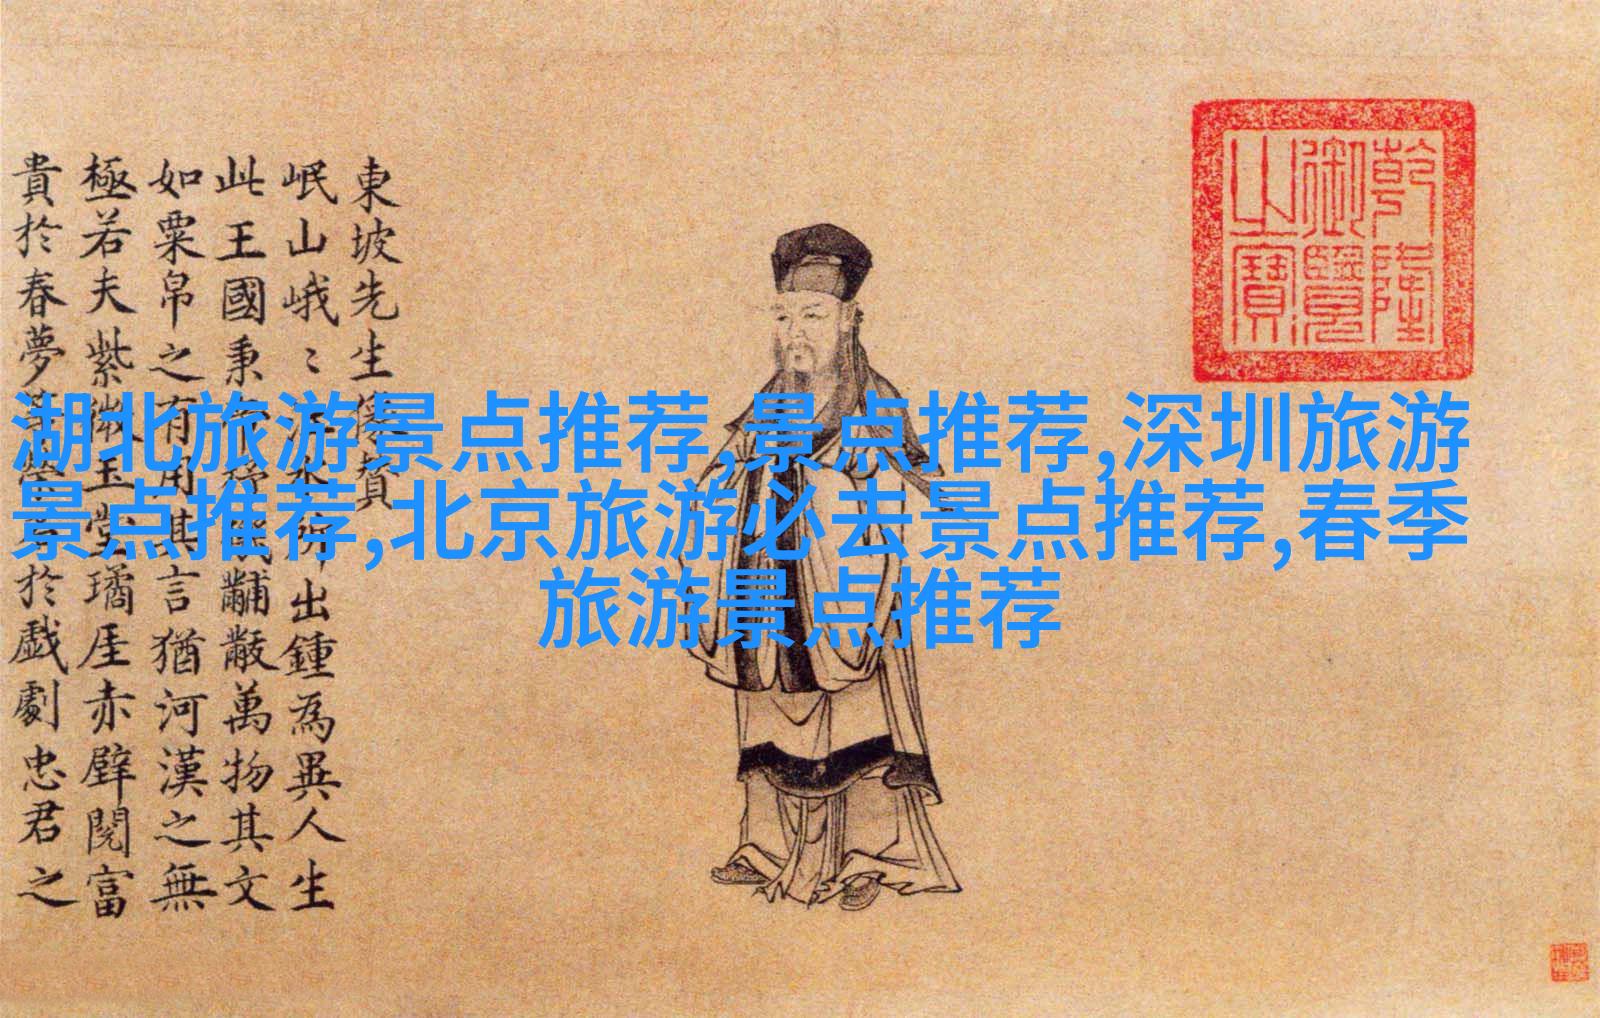 東坡先生像贊
岷山峨〻江水所出鍾為異人生
此王國秉帝杼機黼黻萬物其文
如粟帛之有用其言猶河漢之無
極若夫紫微玉堂璚厓赤壁閱富
貴於春夢等榮名於戲劇忠君之
乾隆
御覽
之寶
湖北旅游景点推荐,景点推荐,深圳旅游
景点推荐,北京旅游必去景点推荐,春季
旅游景点推荐